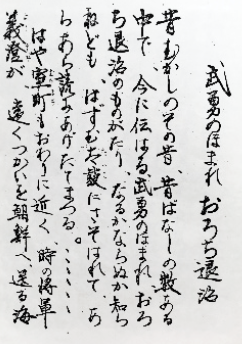 武勇のほまれ おろち退治
昔むかしのその昔 昔ばなしの数ある
中で 今に伝はる武勇のほまれ おろ
ち退治のものがたり、なるかならぬか知ら
ねども はずむ太鼓にさそはれて、あ
らあら読みあげたてまつる。……
はや室町もおわりに近く 時の将軍
義澄が 遠くつかいを朝鮮へ 送る海